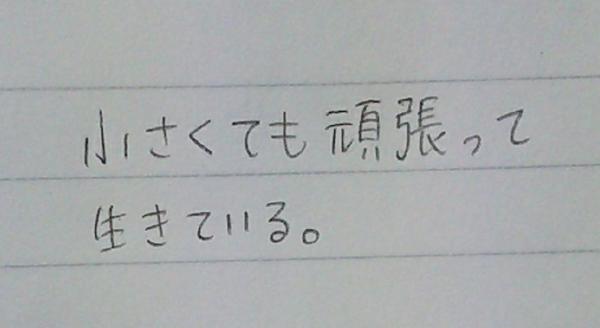 小さくても頑張って
生きている。